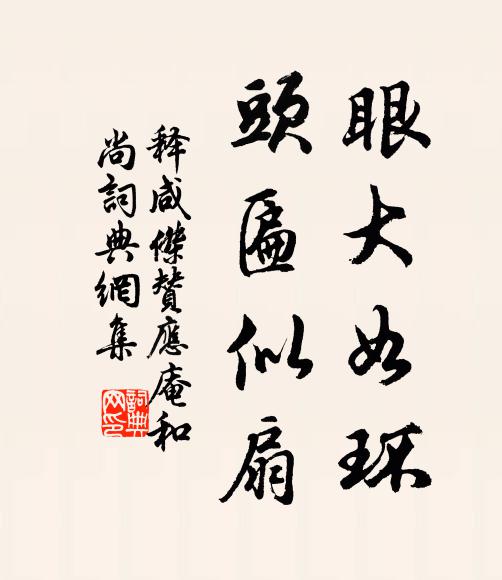 眼大如环
頭匾似扇
释咸傑賛應庵和
尚詞典網集
詞典
网印